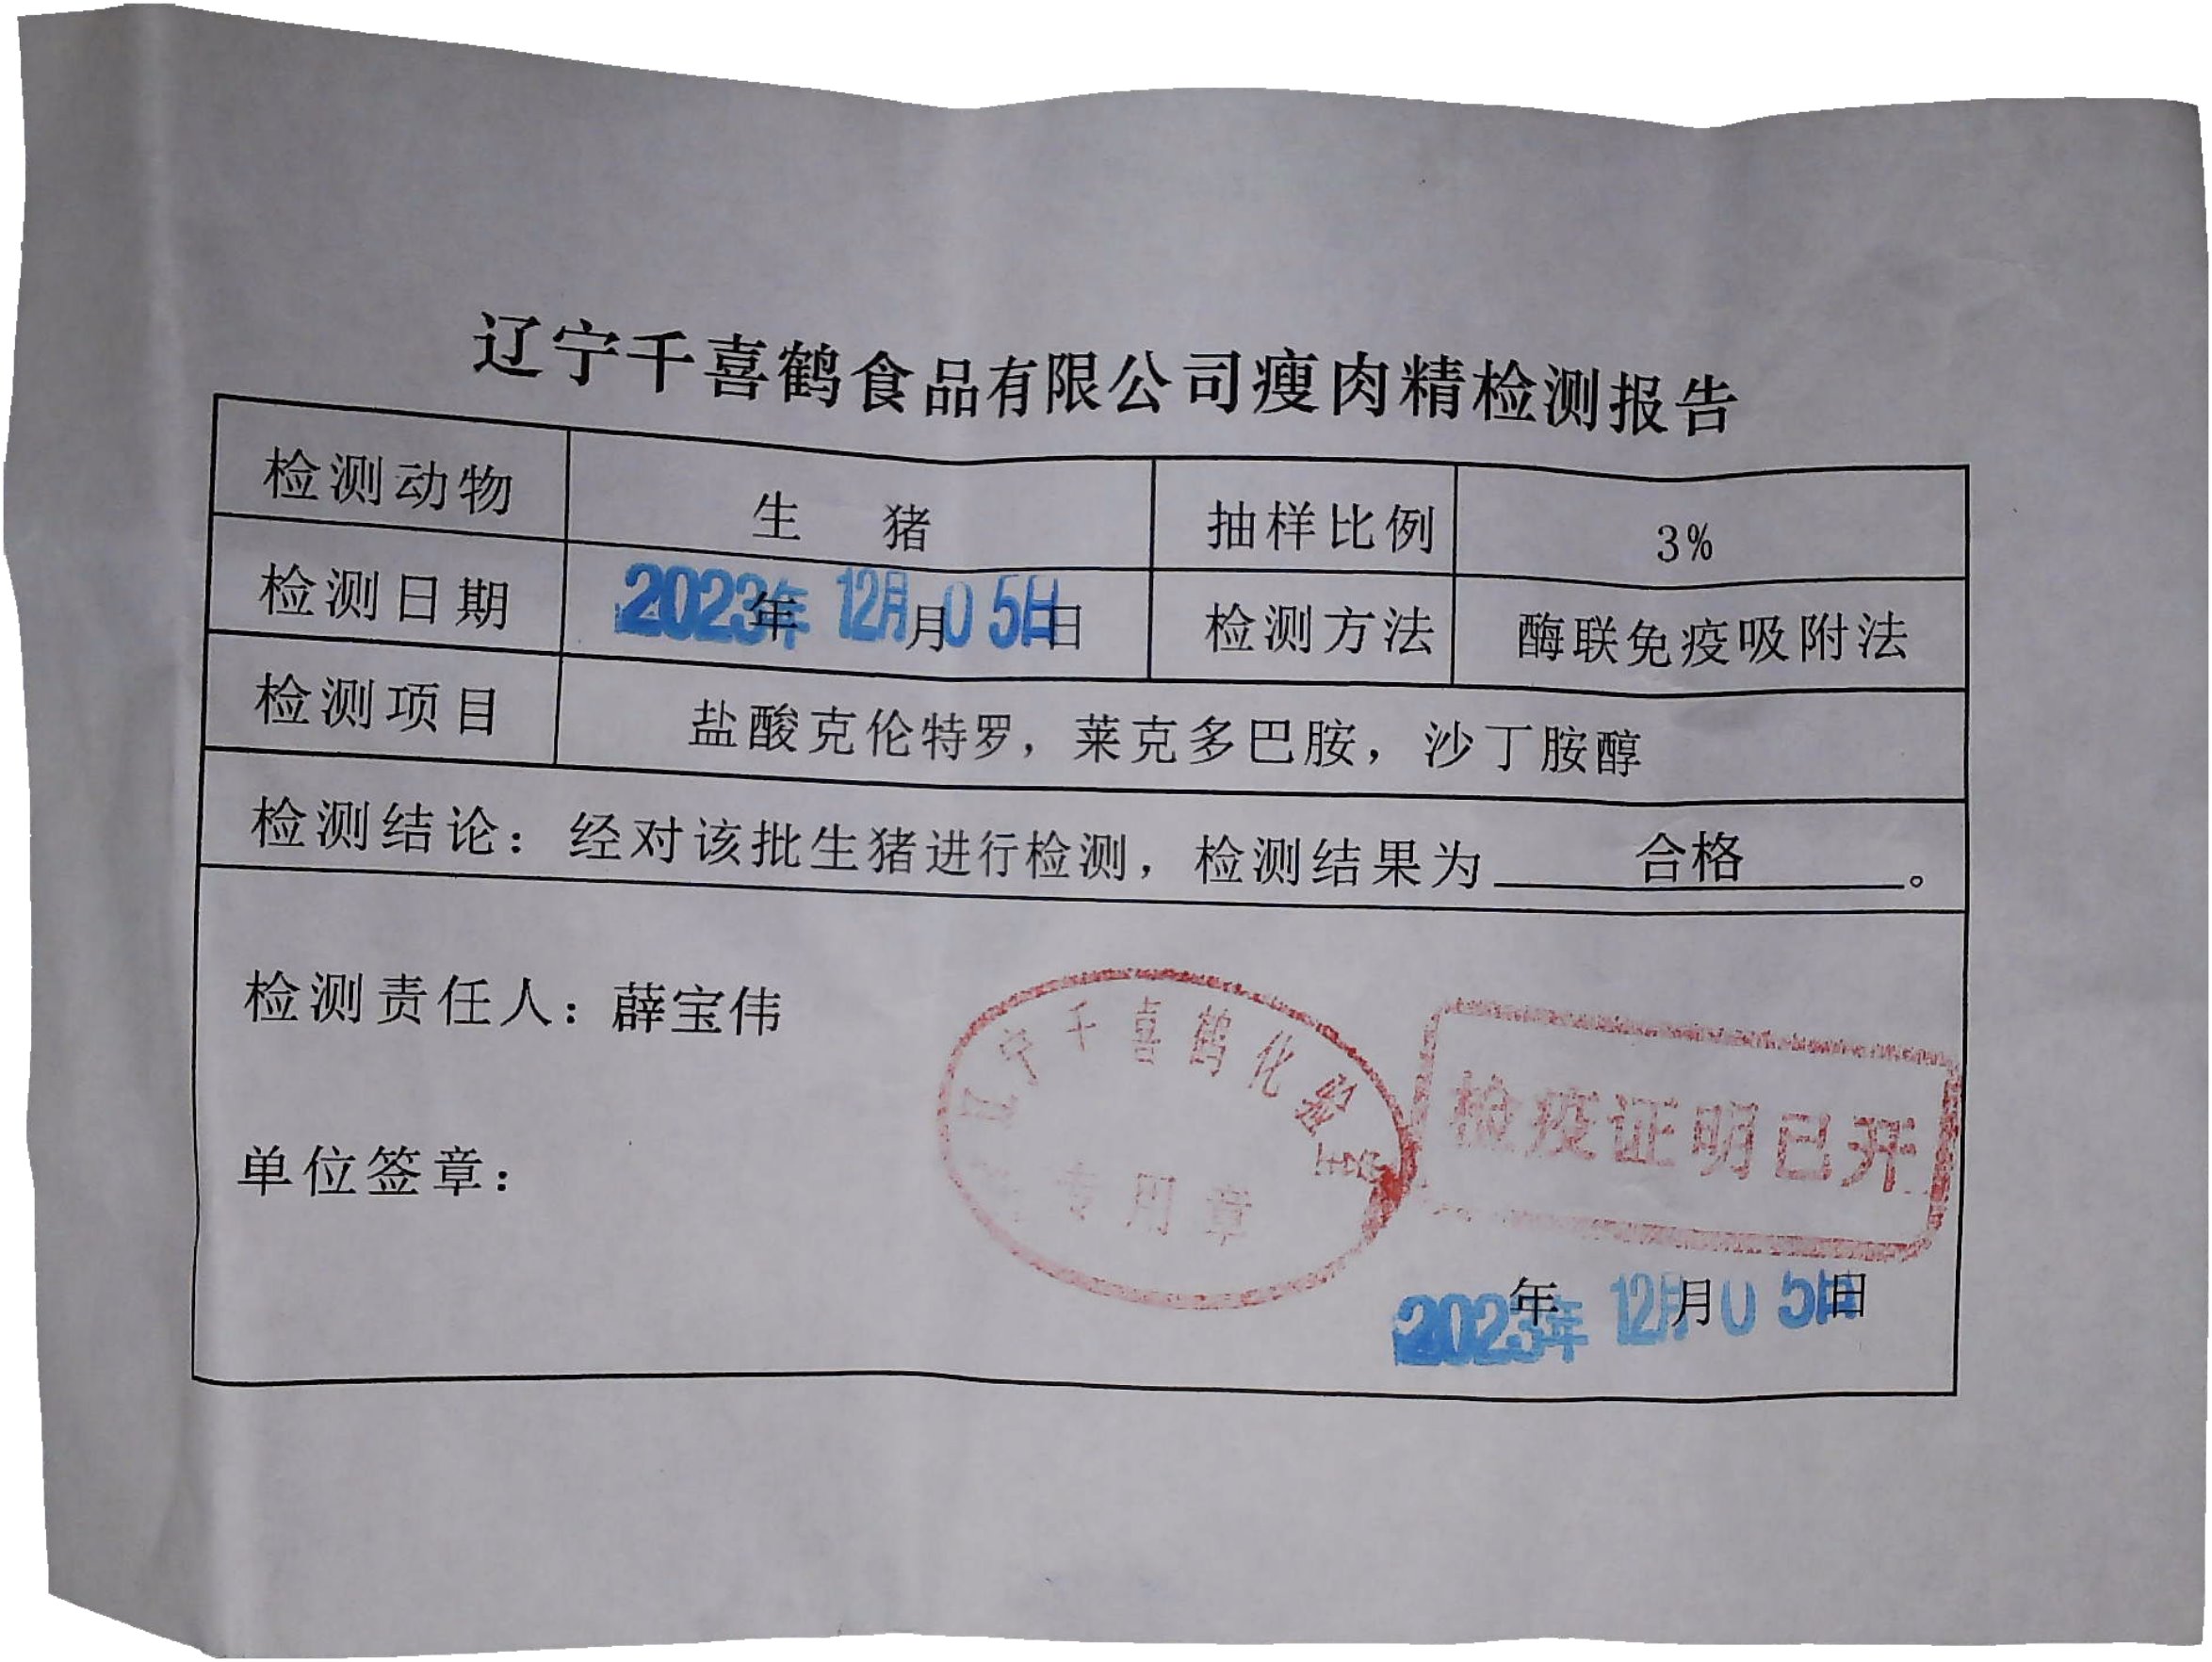 辽宁千喜鹤食品有限公司瘦肉精检测报告
检测动物 生 猪 抽样比例 3%
检测日期 2023年 年 12月 月 05日 日 检测方法 酶联免疫吸附法
检测项目 盐酸克伦特罗，莱克多巴胺，沙丁胺醇
检测结论：经对该批生猪进行检测，检测结果为 合格 。
检测责任人：薛宝伟
辽宁千喜鹤化验室
专用章
检疫证明已开
单位签章：
2023年 年 12月 月 05日 日